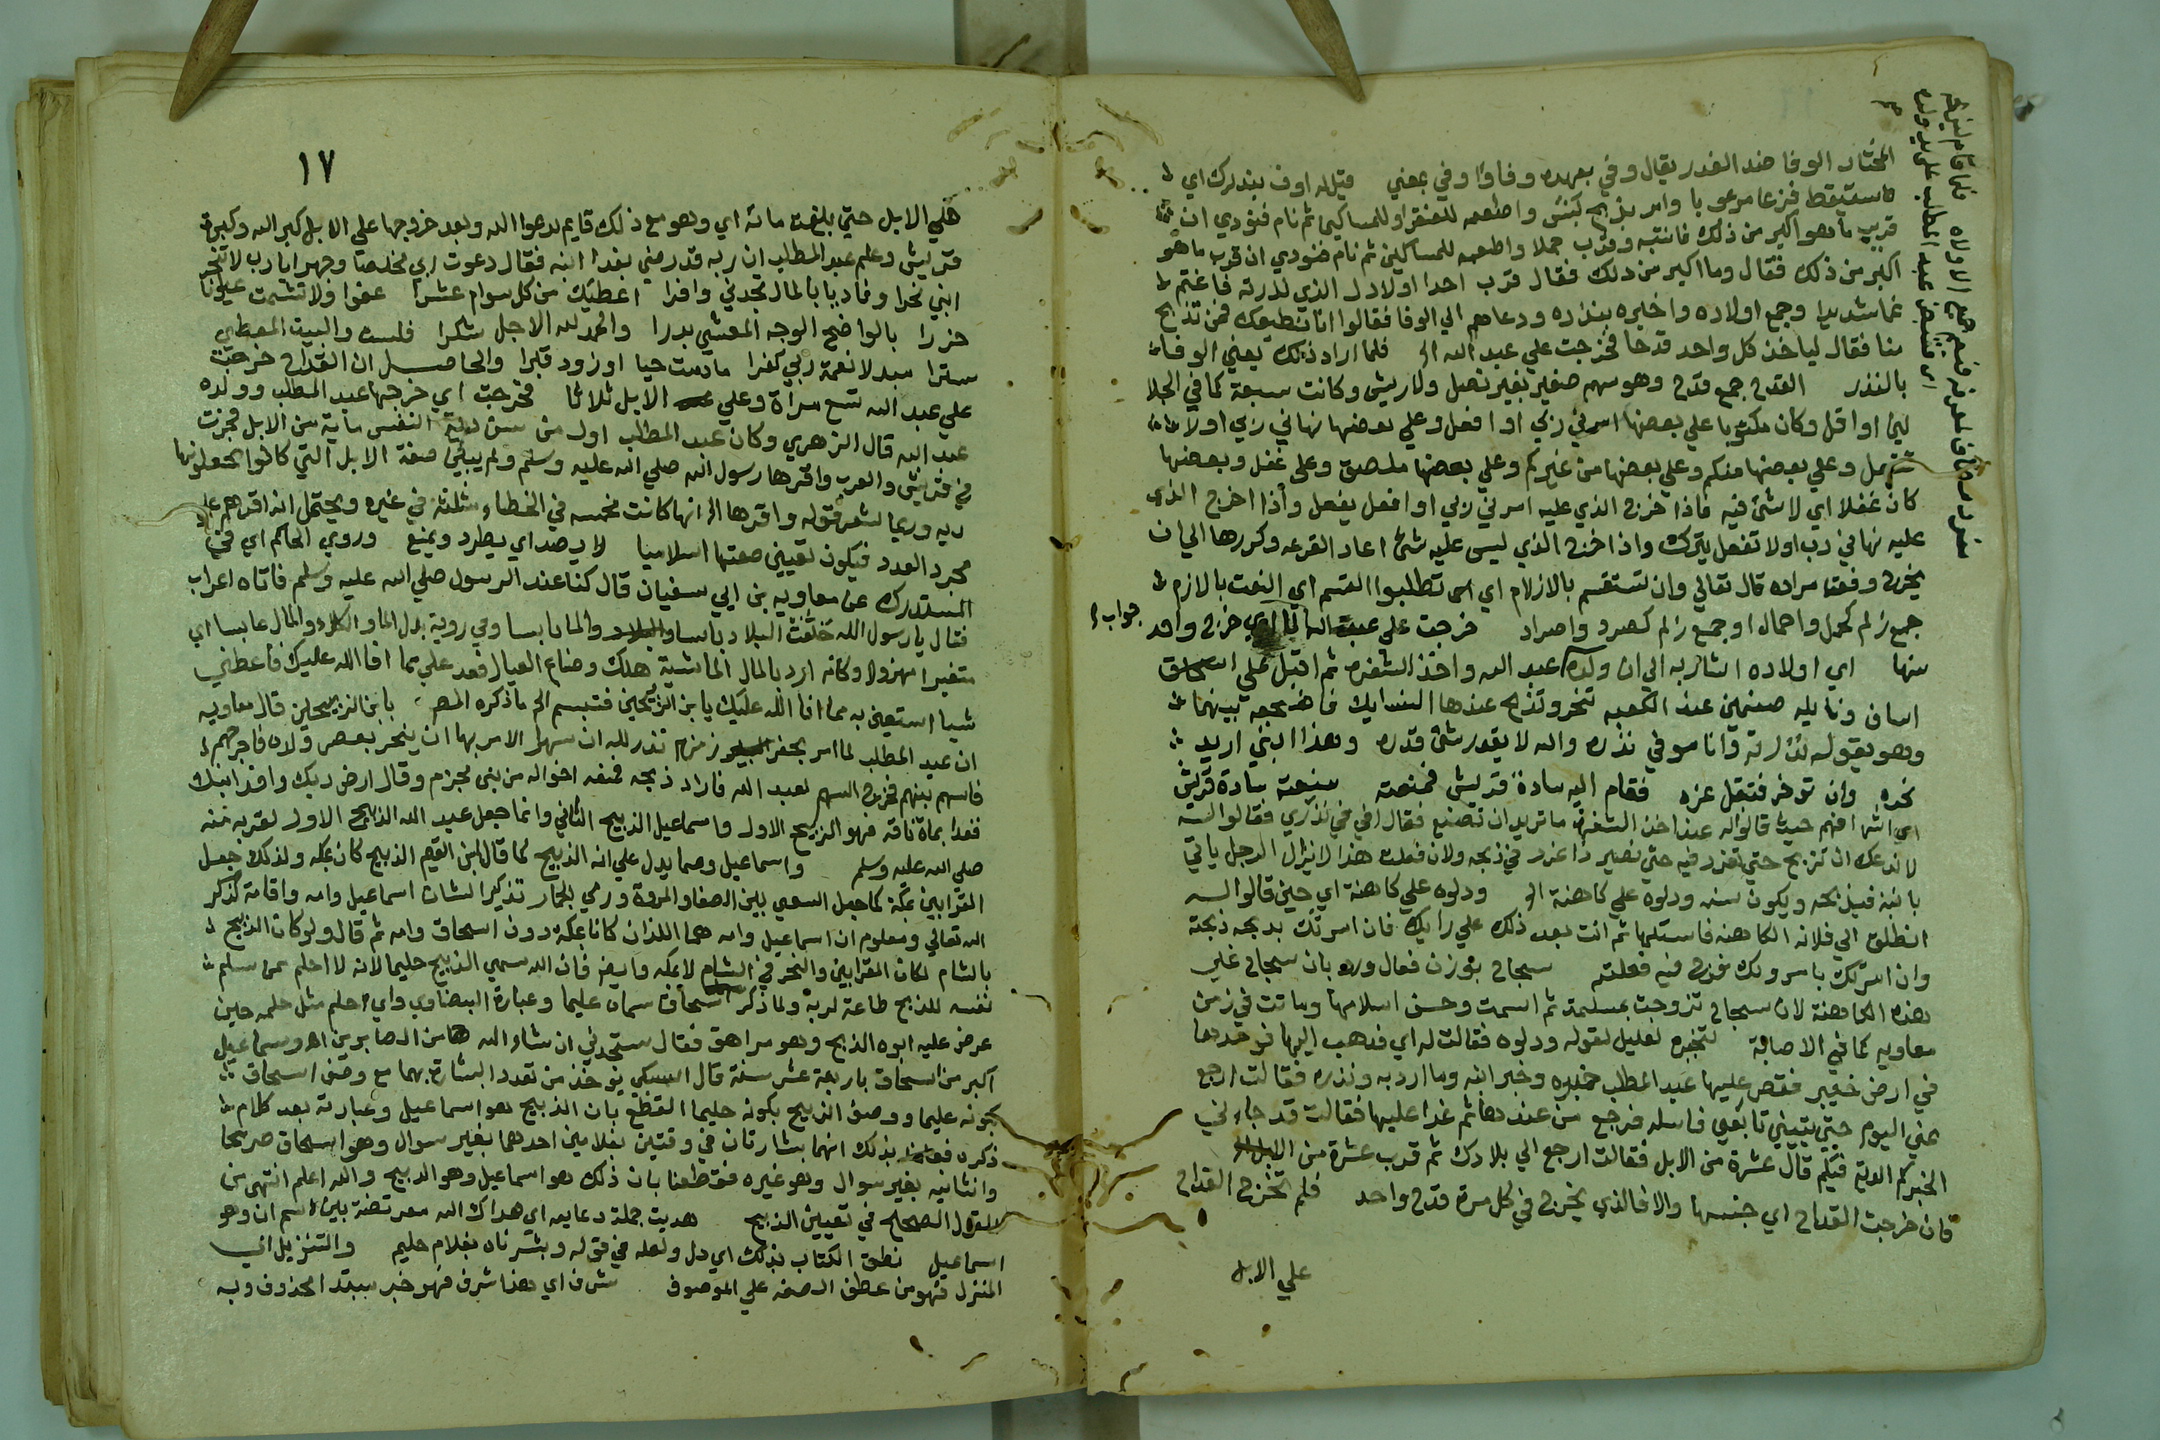 المختار الوفا ضد الغدر يقال وفي بعهده وفاوا وفي بمعني قيل له اوف بنذرك اي
فاستيقظ فزعا مرعوبا وامر بذبح كبش واطعمه للفقرا وللمساكين ثم نام فنودي ان
قرب ما هو اكبر من ذلك فانتبه وقرب جملا واطعمه للمساكين ثم نام فنودي ان قرب ما هو
اكبر من ذلك فقال وما اكبر من ذلك فقال قرب احد اولادك الذي نذرته فاغتم
غما شديدا وجمع اولاده واخبرهم بنذره ودعاهم الي الوفا فقالوا انا نطيعك فمن تذبح
منا فقال لياخذ كل واحد قدحا فخرجت علي عبد الله الخ فلما اراد ذلك يعني الوفا
بالنذر القدح جمع قدح وهو سهم صغير بغير نصل ولا ريش وكانت سبعة كما في الجلا
لين او اقل وكان مكتوبا علي بعضها امرني ربي او افعل وعلي بعضها نهاني ربي اولا
تفعل وعلي بعضها منكم وعلي بعضها من غيركم وعلي بعضها ملصق وعلي غفل وبعضها
كان غفلا اي لا شئ فيه فاذا خرج الذي عليه امرني ربي او افعل يفعل واذا اخرج الذي
عليه نهاني رب اولا تفعل يترك واذا خرج الذي ليس عليه شئ اعاد القرعه وكررها الي ان
يخرج وفق مراده قال تعالي وان تستقسم بالازلام اي تطلبوا القسم اي النعت بالازم
جمع زلم كحمل واحمال او جمع زلم كصرد واصراد خرجت علي عبد الله اي خرج واحد
جواب
منها اي اولاده اشار به الي ان ولده عبد الله واخذ الشفره ثم اقبل علي
اساف ونايله صنمين عند الكعبه تنحر وتذبح عندها النسايك فاضجعه بينهما
وهو يقول نذرته وانا موفي نذره والله لا يقدر شئ قدره وهذا ابني اريد
نحره وان توخر فتقبل عذره فقام اليه سادة قريش فمنعته منعته سادة قريش
اي اشرافهم حيث قالوا له عند اخذ الشفرة ما تريد ان تصنع فقال افي في نذري فقالوا له
لا ندعك ان تذبح حتي تعذر فيه حتي نصير ذا عذر في ذبحه ولان فعلت هذا لا يزال الرجل ياتي
بابنه فيذبحه ويكون سنه ودلوه علي كاهنة الخ ودلوه علي كاهنة اي حين قالوا له
انطلق الي فلانه الكاهنه فاسئلها ثم انت بعد ذلك علي رايك فان امرتك بذبحه ذبحته
وان امرتك بامر ولك فرج فيه فعلته سجاح بوزن فعال ورد بان سجاح غير
هذه الكاهنة لان سجاح تزوجت بمسيلمة ثم اسلمت وحسن اسلامها وماتت في زمن
معاويه كما في الاصابة لتخبره تعليل لقوله ودلوه فقالت له اي فذهب اليها فوجدها
في ارض خيبر فقص عليها عبد المطلب خبره وخبر ابنه وما اراد به ونذره فقالت ارجع
عني اليوم حتي ياتيني تابعي فاسئله فرجع من عندها ثم غدا عليها فقالت قد جاءني
الخبر كم الدية فيكم قال عشرة من الابل فقالت ارجع الي بلادك ثم قرب عشرة من الابل
فان خرجت القداح اي جنسها والا فالذي يخرج في كل مرة قدح واحد فلم تخرج القداح
علي الابل
١٧
علي الابل حتي بلغت مائة اي وهو مع ذلك قايم يدعوا الله وبعد خروجها علي الابل كبر الله وكبرت
قريش وعلم عبد المطلب ان ربه قد رضي بفدا ابنه فقال دعوت ربي مخلصا وجهرا يا رب لا تنحر
ابني نحرا وفاديا بالمال تجدني وافرا اعطيك من كل سوام عشرا عفوا ولا تشمت عيونا
خزرا بالواضح الوجه المغشي بدرا والحمد لله الاجل شكرا فلست والبيت المغطي
سترا مبدلا نعمة ربي كفرا ما دمت حيا او ازور قبرا والحاصل ان القداح خرجت
علي عبد الله تسع مرآة وعلي الابل ثلاثا فخرجت اي خرجها عبد المطلب وولده
عبد الله قال الزهري وكان عبد المطلب اول من سن دية النفس ماية من الابل فجرت
في قريش والعرب واقرها رسول الله صلي الله عليه وسلم ولم يبين صفة الابل التي كانوا يجعلونها
دية وربما يشعر قوله واقرها الخ انها كانت مخمسه في الخطاء مثلثة في غيره ويحتمل انه اقرهم علي
مجرد العدد فيكون تعيين صفتها اسلاميا لا يصد اي يطرد ويمنع وروي الحاكم اي في
المستدرك عن معاويه بن ابي سفيان قال كنا عند الرسول صلي الله عليه وسلم فاتاه اعراب
فقال يا رسول الله خلفت البلاد يابسا والما يابسا وفي رواية بدل الما والكلاء والمال عابسا اي
متغيرا مهزولا وكانه اراد بالمال الماشية هلك وضاع العيال فعد علي مما افا الله عليك فاعطني
شيا استعين به مما افا الله عليك يا بن الذبيحين فتبسم الخ ما ذكره المص يا بن الذبيحين قال معاويه
ان عبد المطلب لما امر بحفر زمزم نذر لله ان سهل الامر بها ان ينحر بعض ولده فاخرجهم
فاسهم بينهم فخرج السهم لعبد الله فاراد ذبحه فمنعه اخواله من بني مخزوم وقال ارض ربك وافد ابنك
ففداه بماة ناقة فهو الذبيح الاول واسماعيل الذبيح الثاني وانما جعل عبد الله الذبيح الاول لقربه منه
صلي الله عليه وسلم واسماعيل ومما يدل علي انه الذبيح كما قال ابن القيم الذبيح كان بمكة ولذلك جعل
القرابين بمكة كما جعل السعي بين الصفا والمروة ورمي الجمار تذكيرا لشان اسماعيل وامه واقامة لذكر
الله تعالي ومعلوم ان اسماعيل وامه هما اللذان كانا بمكة دون اسحاق وامه ثم قال ولو كان الذبيح
بالشام لكان القرابين والنحر في الشام لا بمكة وايض فان الله سمي الذبيح حليما لانه لا احلم ممن سلم
نفسه للذبح طاعة لربه ولما ذكر اسحاق سماه عليما وعبارة البيضاوي واي حلم مثل حلمه حين
عرض عليه ابوه الذبح وهو مراهق فقال ستجدني ان شاء الله من الصابرين اه واسماعيل
اكبر من اسحاق باربعة عشر سنة قال السبكي يوخذ من تعدد البشارة بهما مع وصف اسحاق
بكونه عليما ووصف الذبيح بكونه حليما القطع بان الذبيح هو اسماعيل وعبارته بعد كلام
ذكره فعلمنا بذلك انهما بشارتان في وقتين بغلامين احدهما بغير سوال وهو اسحاق صريحا
والثانيه بغير سوال وهو غيره فقطعنا بان ذلك هو اسماعيل وهو الذبيح والله اعلم انتهي من
القول الصحيح في تعيين الذبيح هديت جملة دعاييه اي هداك الله معترضة بين اسم ان وهو
اسماعيل نطق الكتاب بذلك اي دل ولعله في قوله وبشرناه بغلام حليم والتنزيل اي
المنزل فهو من عطف الصفه علي الموصوف شرف اي هذا شرف فهو خبر مبتدا محذوف وبه